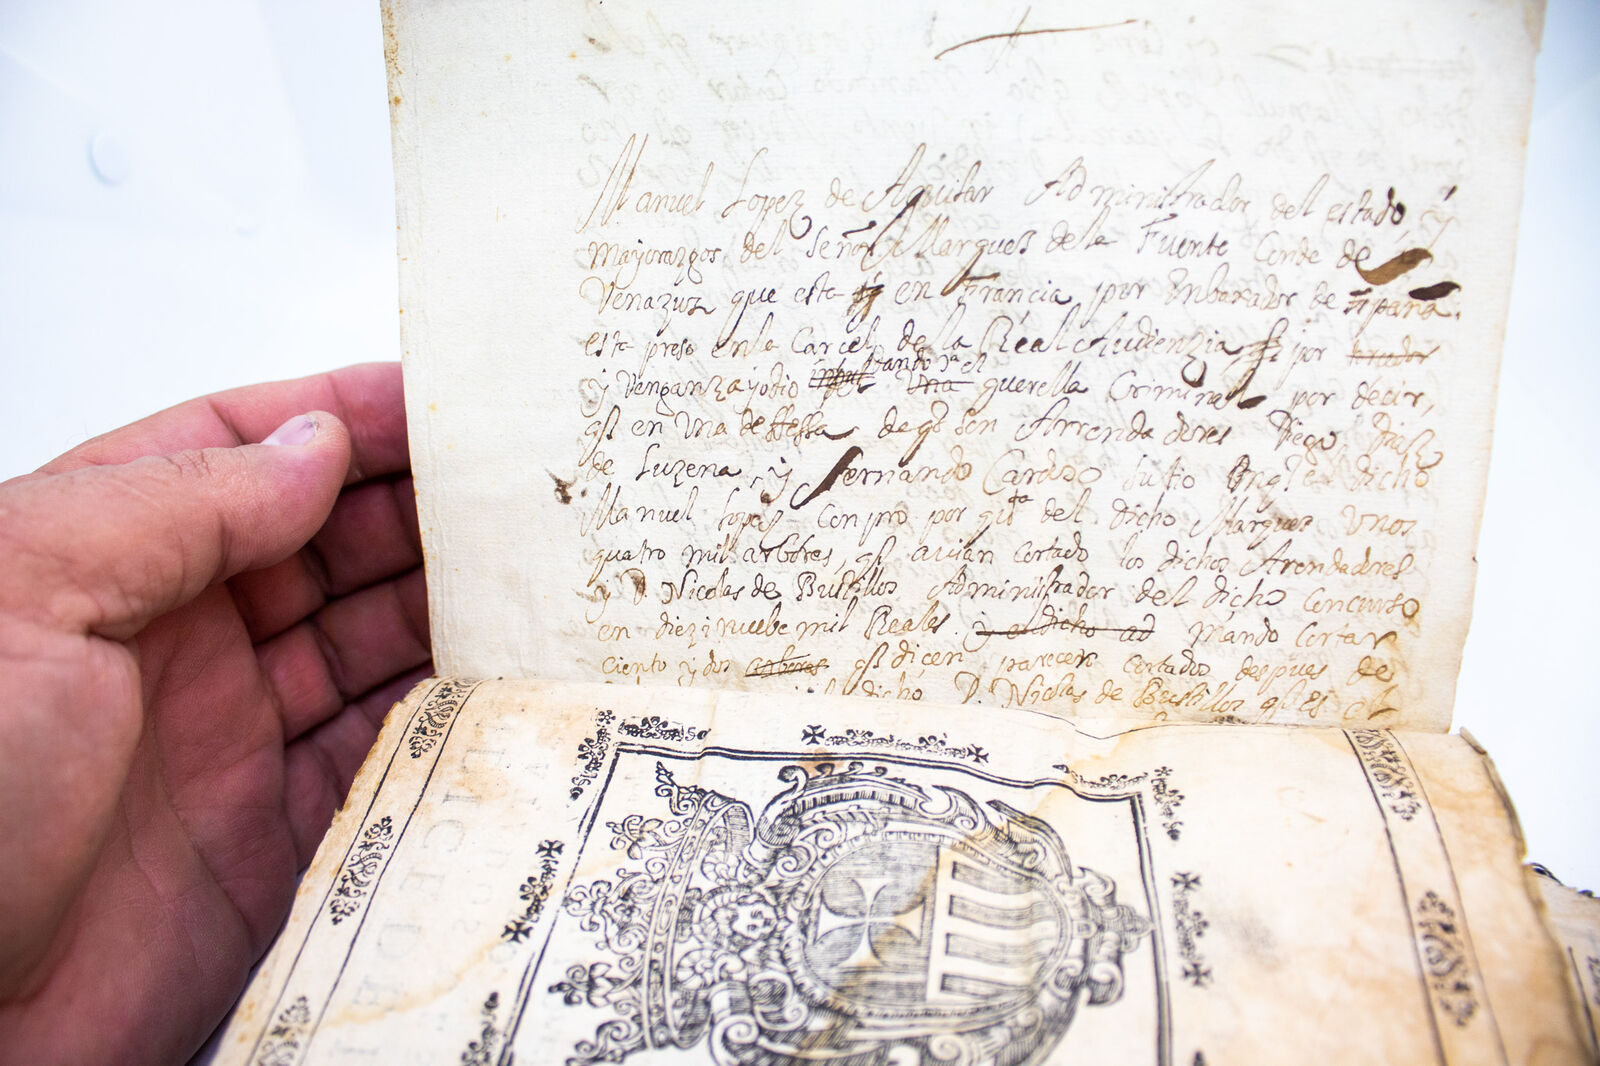 Manuel Lopez de Aguilar Administrador del estado, y
Mayorazgos del Señor Marques de la Fuente Conde de
Venazuz que esta en Francia por Enbaxador de España.
esta preso en la Carcel de la Real Audienzia por
y Venganza y odio querella Criminal por decir,
q̃ en Una deHessa de q̃ son Arrendadores Diego Diaz
de Luzena, y Fernando Cardoso dicho
Manuel Lopez Conpro por qta del dicho Marques Unos
quatro mil arboles, q̃ avian Cortado los dichos Arendadores
y D. Nicolas de Bustillos Administrador del dicho Concurso
en diez i nuebe mil Reales. y el dicho ad mando Cortar
ciento y dos arboles q̃ dicen parecen Cortados despues de
dicho D. Nicolas de Bustillos q̃ es el